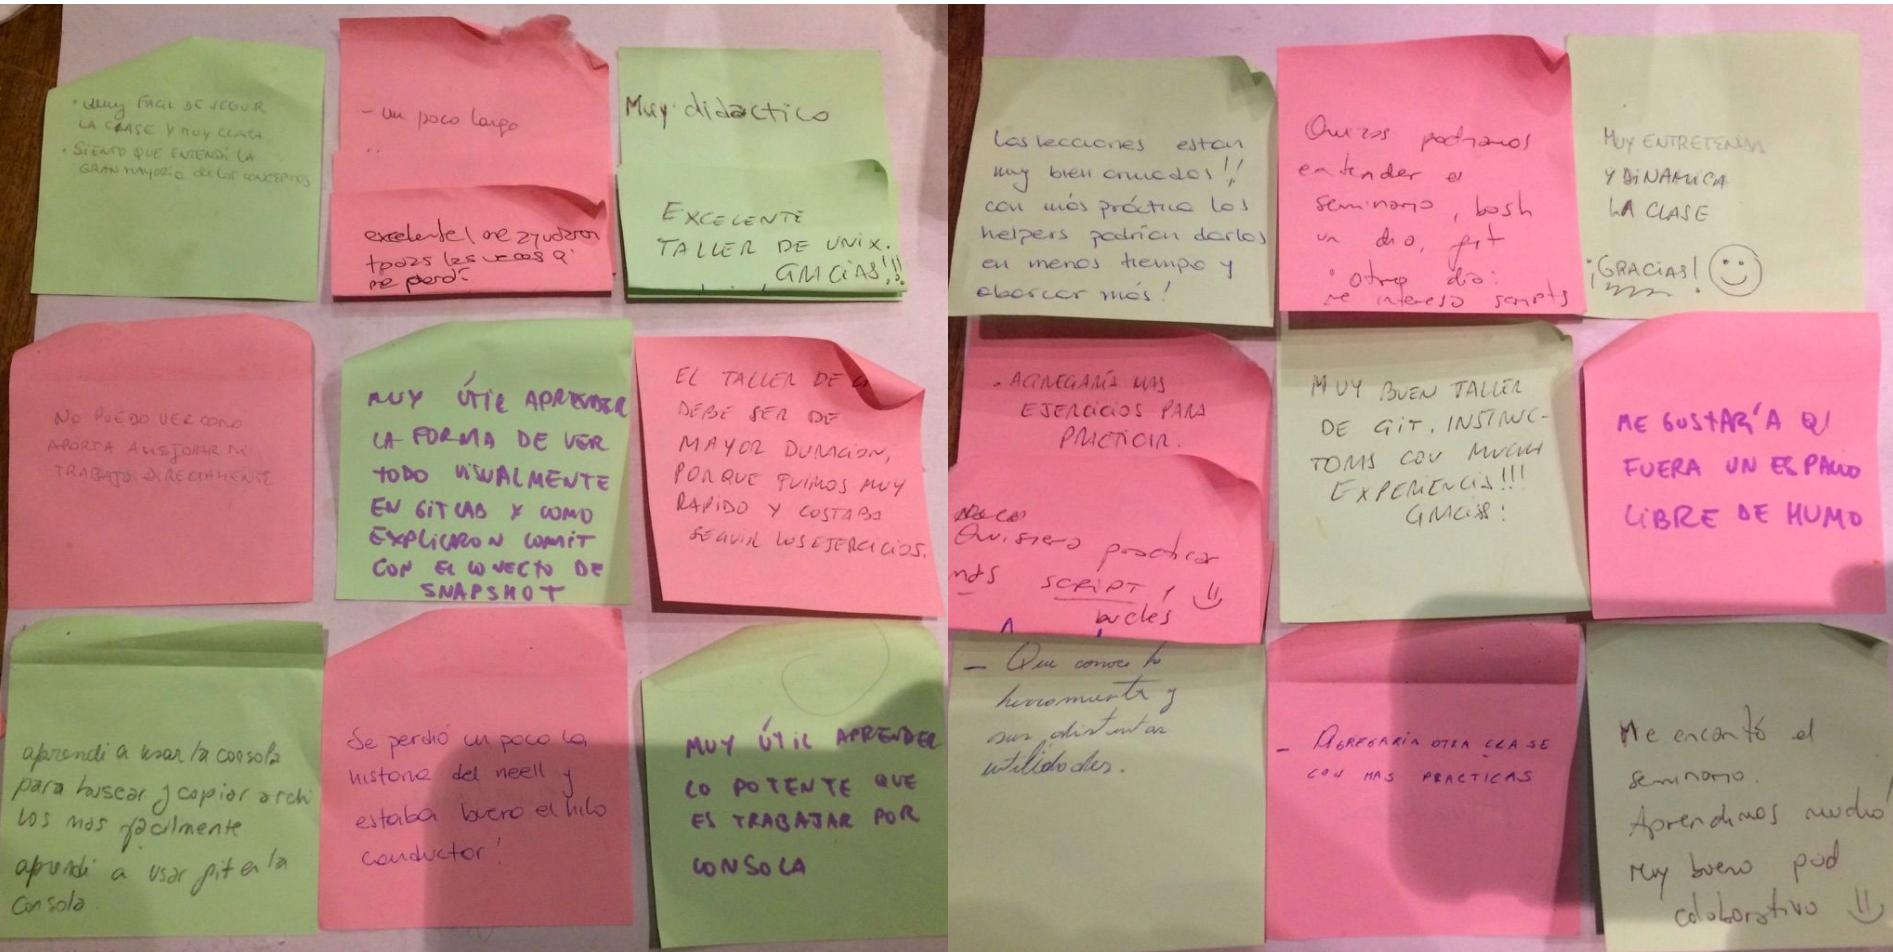 • Muy FACIL DE SEGUIR
LA CLASE Y MUY CLARA
• SIENTO QUE ENTENDÍ LA
GRAN MAYORIA de LOS CONCEPTOS
- un poco largo
excelente! me ayudaron
todas las veces q'
me perdí
Muy didactico
EXCELENTE
TALLER DE UNIX.
GRACIAS!!!
NO PUEDO VER COMO
APORTA A MEJORAR MI
TRABAJO DIRECTAMENTE
MUY ÚTIL APRENDER
LA FORMA DE VER
TODO VISUALMENTE
EN GITLAB Y COMO
EXPLICARON COMMIT
CON EL CONECTO DE
SNAPSHOT
EL TALLER DE
DEBE SER DE
MAYOR DURACION,
PORQUE FUIMOS MUY
RAPIDO Y COSTABA
SEGUIR LOS EJERCICIOS.
aprendi a usar la consola
para buscar y copiar archi
vos mas fácilmente
aprendi a usar git en la
consola.
Se perdió un poco la
historia del neell y
estaba bueno el hilo
conductor!
MUY ÚTIL APRENDER
LO POTENTE QUE
ES TRABAJAR POR
CONSOLA
Las lecciones estan
muy bien armadas!!
con más práctica los
helpers podrían darlos
en menos tiempo y
abarcar más!
Quizas podriamos
entender el
seminario, bash
un dia, git
otro dia.
me intereso scripts
MUY ENTRETENIDA
Y DINAMICA
LA CLASE
¡GRACIAS!
• AGREGARÍA MAS
EJERCICIOS PARA
PRACTICAR.
Quisiera practicar
más SCRIPT y
bucles
MUY BUEN TALLER
DE GIT. INSTRUC-
TORAS CON MUCHA
EXPERIENCIA!!!
GRACIAS!
ME GUSTARÍA Q'
FUERA UN ESPACIO
LIBRE DE HUMO
- Que conoce la
herramienta y
sus distintas
utilidades.
- AGREGARIA OTRA CLASE
CON MAS PRACTICAS
Me encantó el
seminario.
Aprendimos mucho!
Muy bueno pad
colaborativo